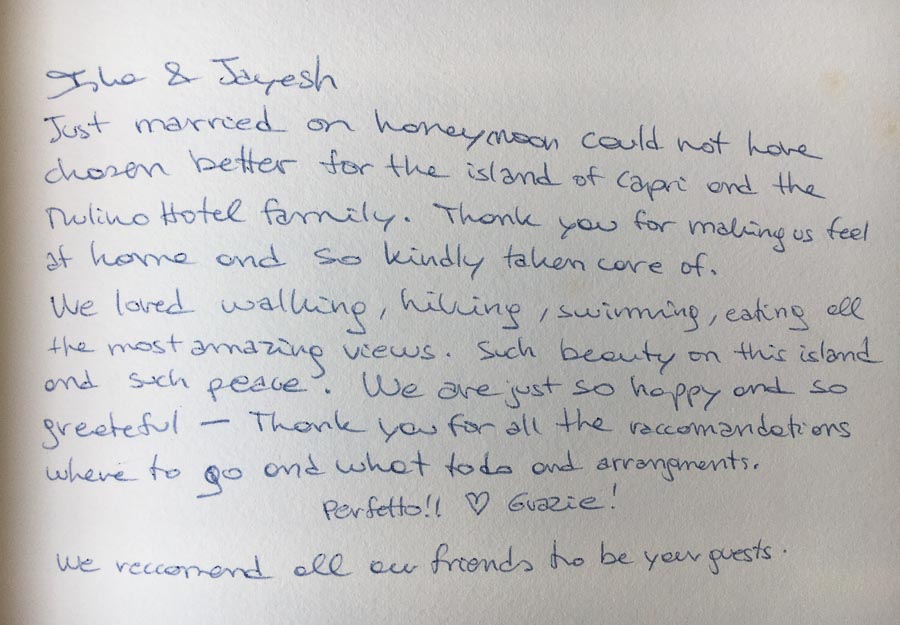 Isha & Jayesh
Just married on honeymoon could not have
chosen better for the island of Capri and the
Mulino Hotel family. Thank you for making us feel
at home and so kindly taken care of.
We loved walking, hiking, swimming, eating all
the most amazing views. Such beauty on this island
and such peace. We are just so happy and so
greateful — Thank you for all the raccomandations
where to go and what to do and arrangments.
Perfetto!! ♡ Grazie!
We reccomend all our friends to be your guests.